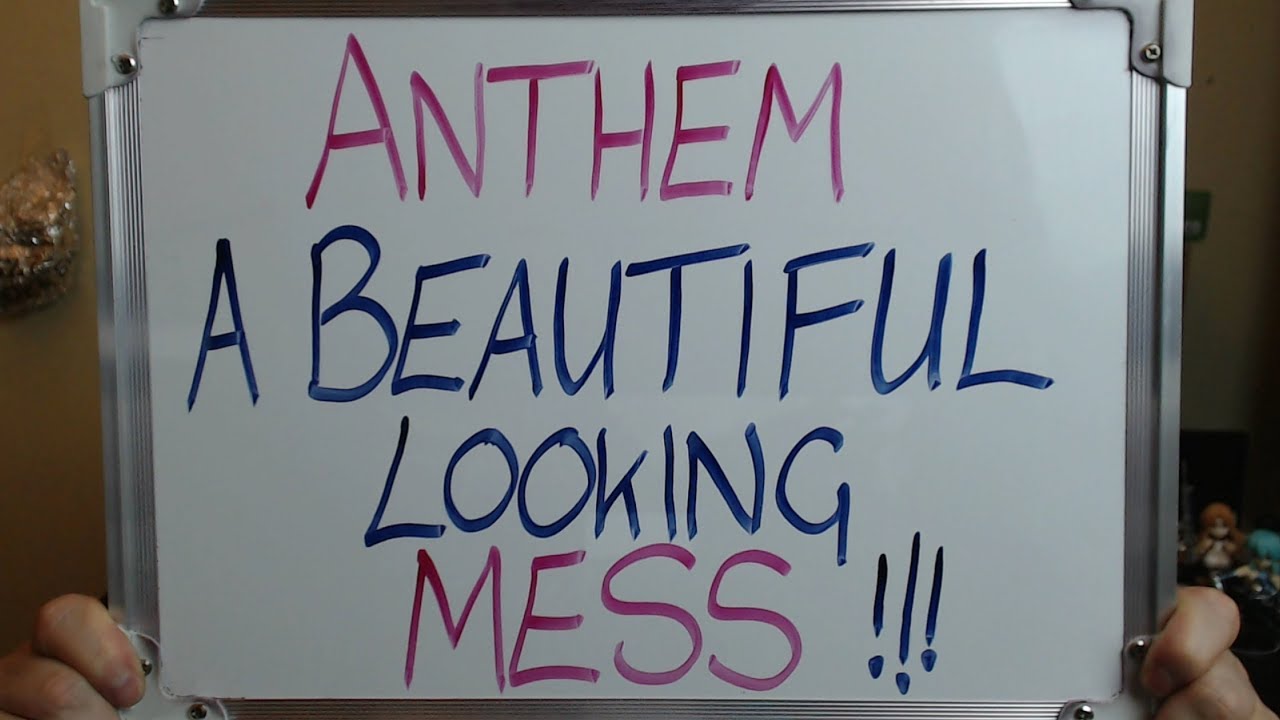 ANTHEM
A BEAUTIFUL
LOOKING
MESS !!!